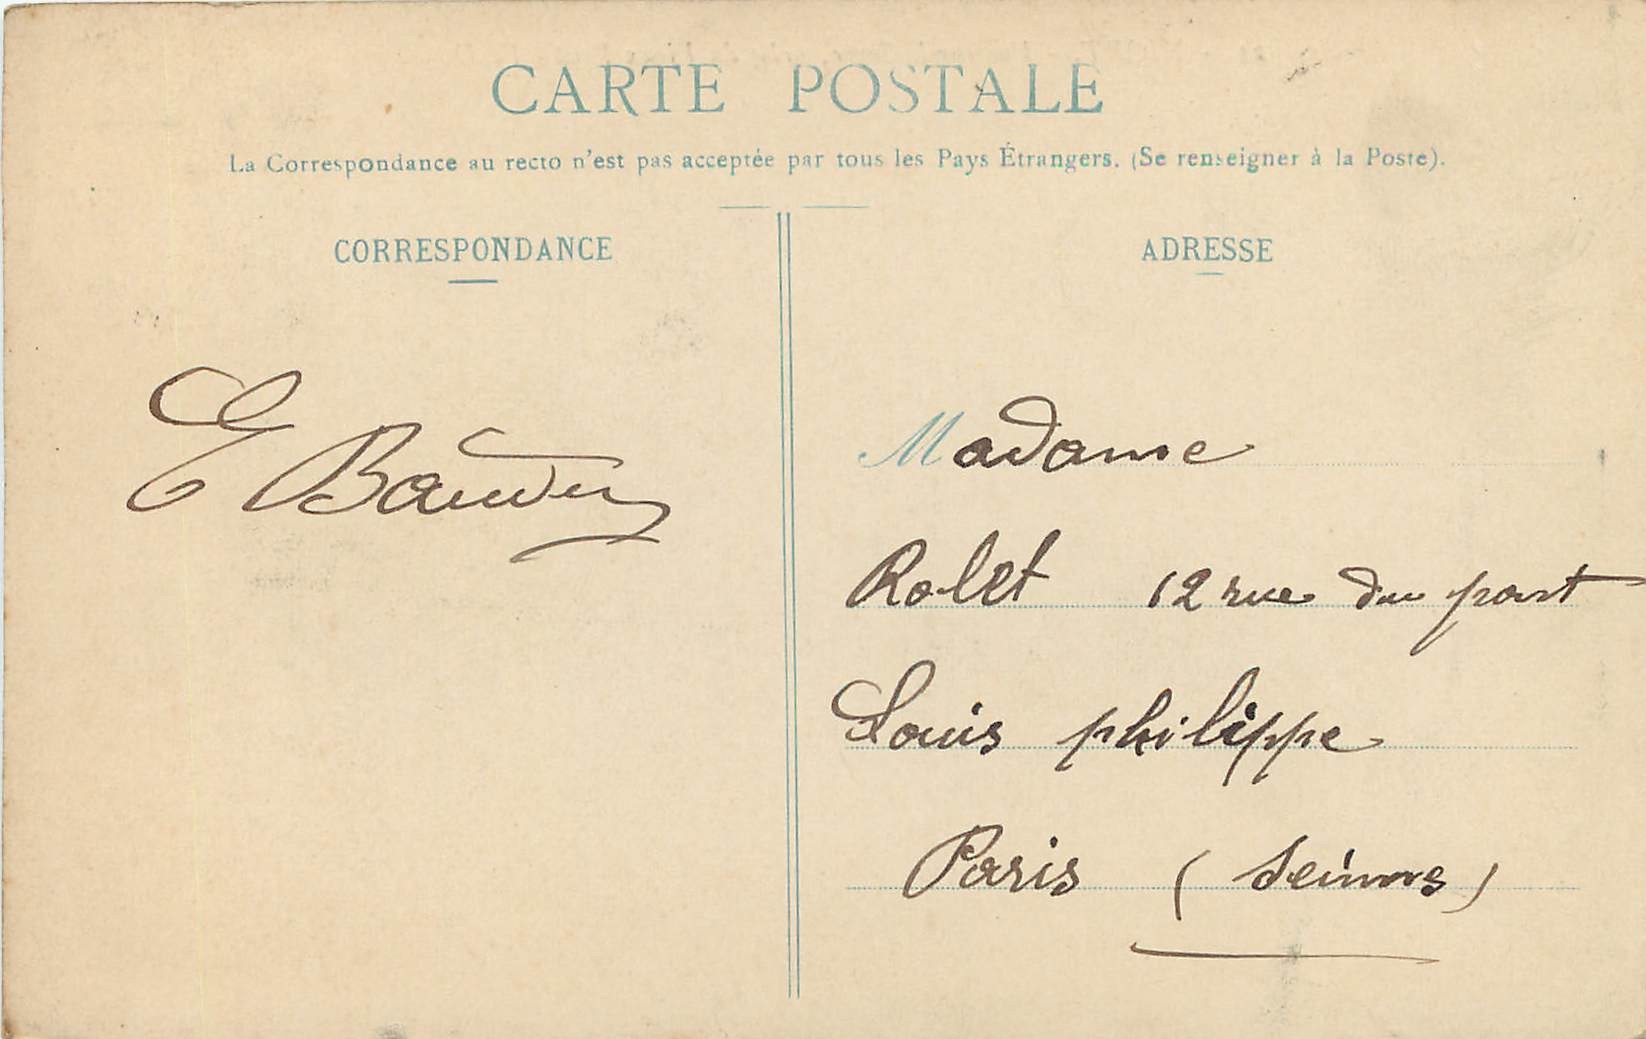 CARTE POSTALE
La Correspondance au recto n'est pas acceptée par tous les Pays Étrangers. (Se renseigner à la Poste).
CORRESPONDANCE
ADRESSE
E
Madame
Rolet 12 rue du pont
Louis philippe
Paris (